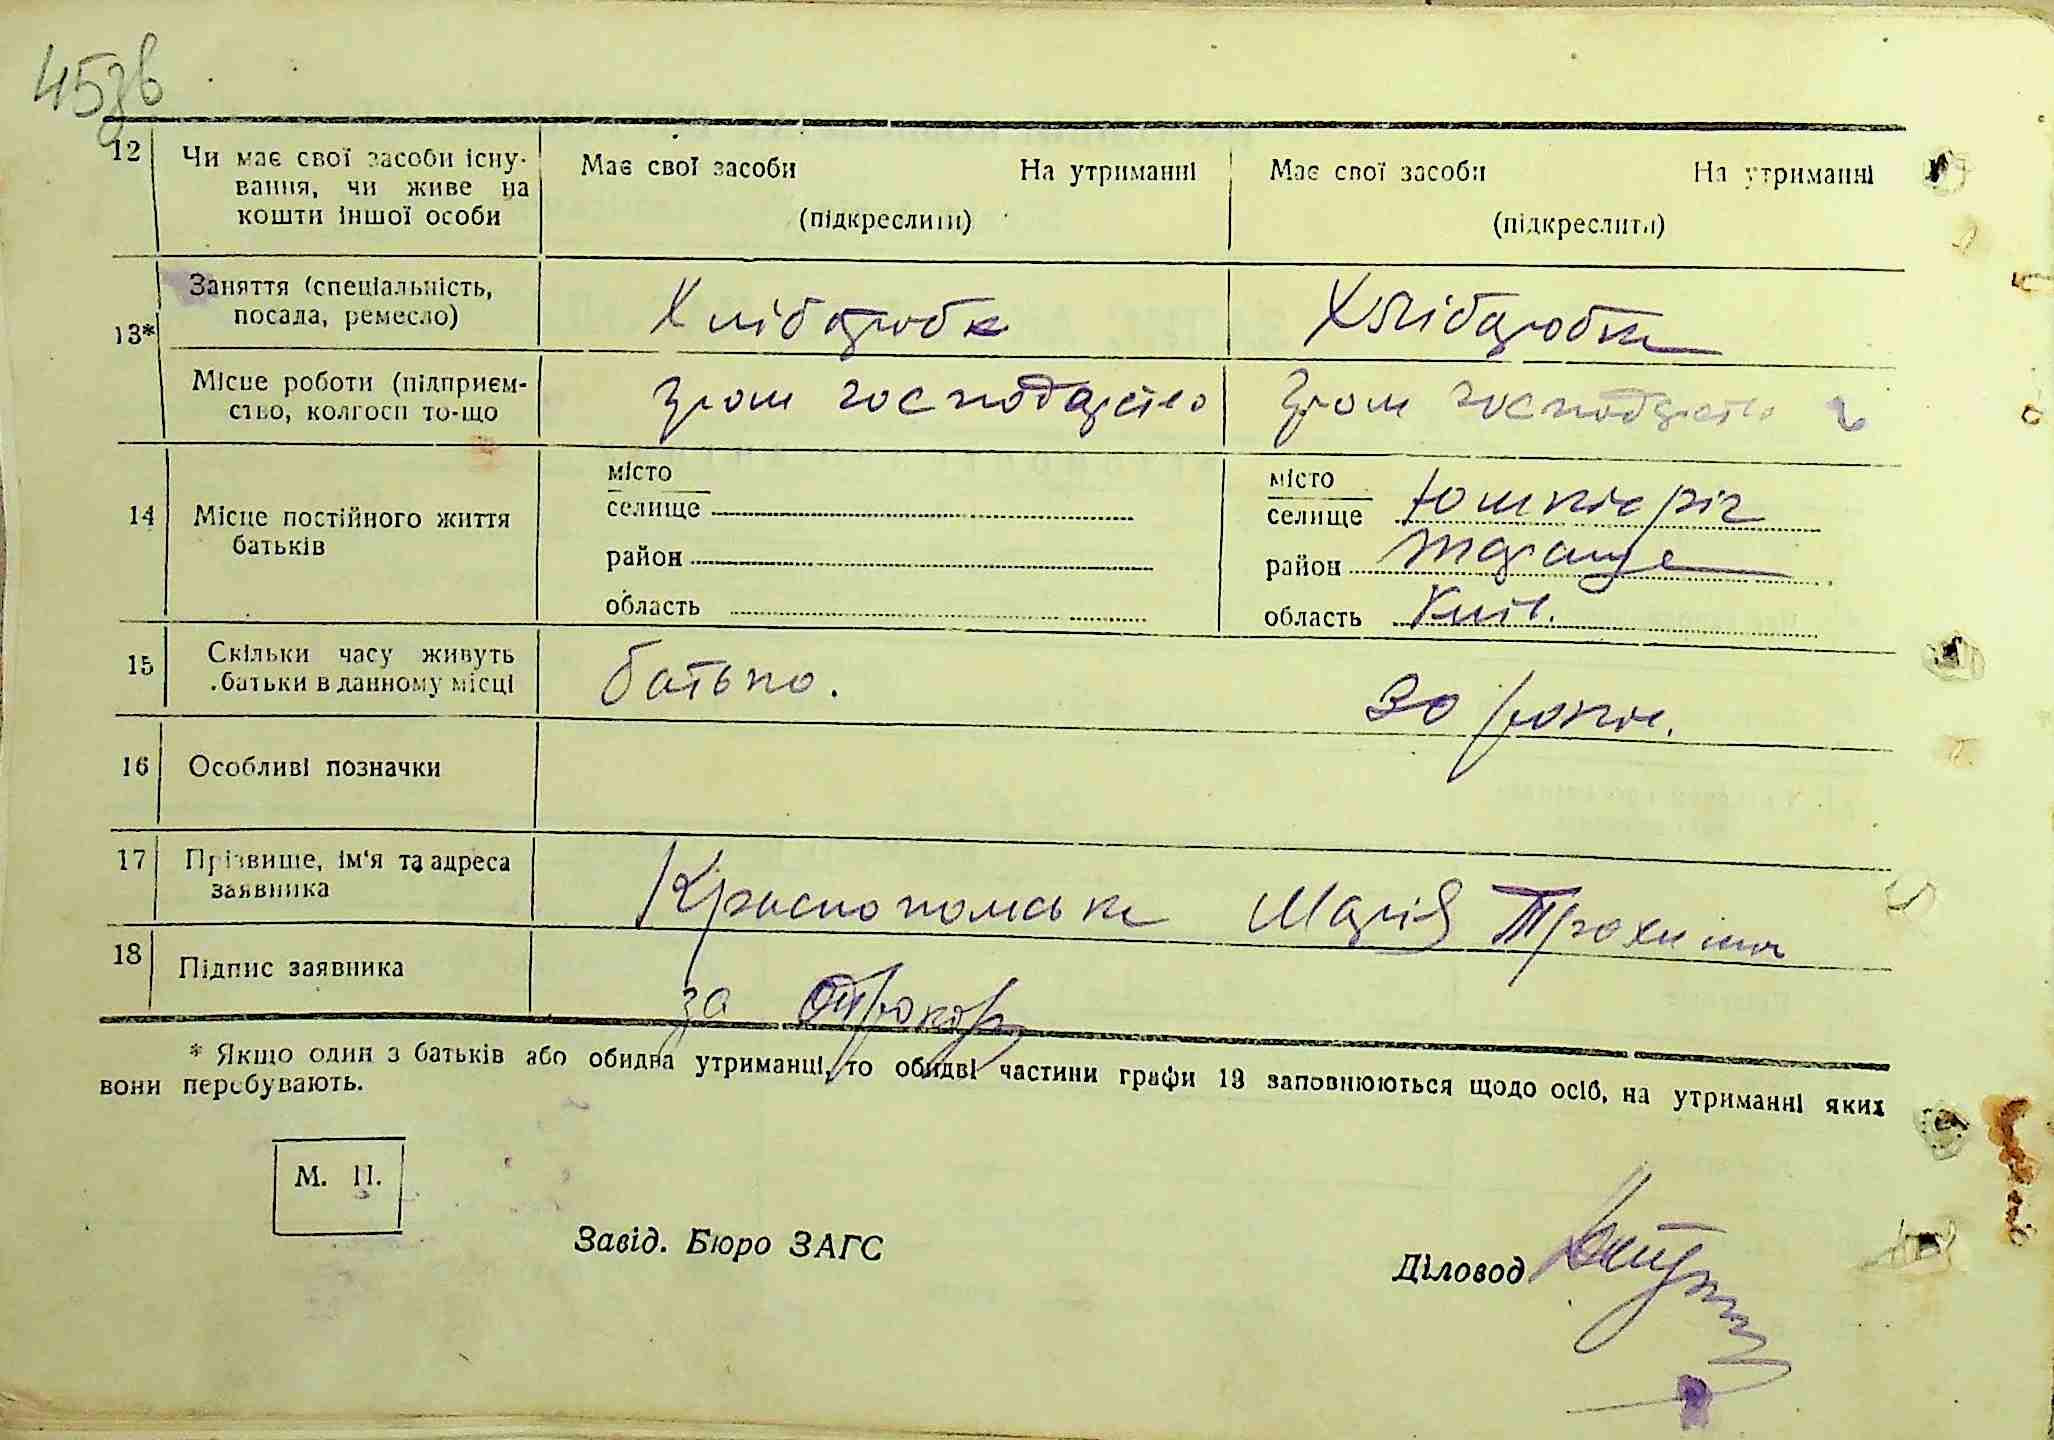 45зв
12 Чи має свої засоби існу-
вання, чи живе на
кошти іншої особи
Має свої засоби На утриманні
(підкреслити)
Має свої засоби На утриманні
(підкреслити)
13*
Заняття (спеціальність,
посада, ремесло)
Хлібороб Хліборобка
Місце роботи (підприєм-
ство, колгосп то-що
господарство господарство
14 Місце постійного життя
батьків
місто
селище
район
область
місто
селище Юшків ріг
район
область Київ.
15 Скільки часу живуть
батьки в данному місці
батько. 30 років.
16 Особливі позначки
17 Прізвище, ім'я та адреса
заявника
Краснопольська Марія Трохимів
18 Підпис заявника
за
* Якщо один з батьків або обидва утриманці, то обидві частини графи 13 заповнюються щодо осіб, на утриманні яких
вони перебувають.
М. П.
Завід. Бюро ЗАГС
Діловод